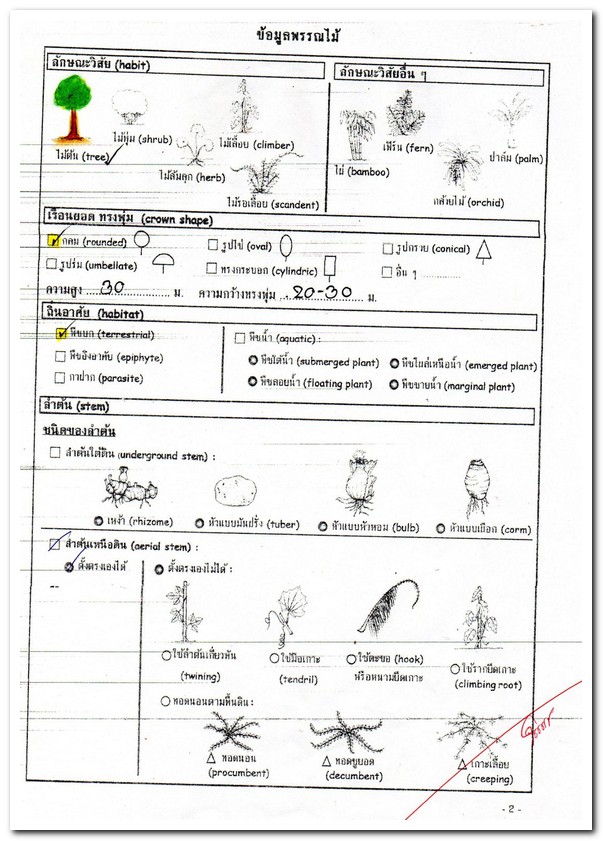 ข้อมูลพรรณไม้
ลักษณะวิสัย (habit)
ลักษณะวิสัยอื่น ๆ
ไม้ต้น (tree)
ไม้พุ่ม (shrub)
ไม้เลื้อย (climber)
ไม้ล้มลุก (herb)
ไม้รอเลื้อย (scandent)
ไผ่ (bamboo)
เฟิร์น (fern)
ปาล์ม (palm)
กล้วยไม้ (orchid)
เรือนยอด ทรงพุ่ม (crown shape)
กลม (rounded)
รูปไข่ (oval)
รูปกรวย (conical)
รูปร่ม (umbellate)
ทรงกระบอก (cylindric)
อื่น ๆ ................
ความสูง ...30............ ม. ความกว้างทรงพุ่ม ..20-30.. ม.
ถิ่นอาศัย (habitat)
พืชบก (terrestrial)
พืชน้ำ (aquatic) :
พืชอิงอาศัย (epiphyte)
พืชใต้น้ำ (submerged plant)
พืชโผล่เหนือน้ำ (emerged plant)
กาฝาก (parasite)
พืชลอยน้ำ (floating plant)
พืชชายน้ำ (marginal plant)
ลำต้น (stem)
ชนิดของลำต้น
ลำต้นใต้ดิน (underground stem) :
เหง้า (rhizome)
หัวแบบมันฝรั่ง (tuber)
หัวแบบหัวหอม (bulb)
หัวแบบเผือก (corm)
ลำต้นเหนือดิน (aerial stem) :
ตั้งตรงเองได้
ตั้งตรงเองไม่ได้ :
--
ใช้ลำต้นเกี่ยวพัน
(twining)
ใช้มือเกาะ
(tendril)
ใช้ตะขอ (hook)
หรือหนามยึดเกาะ
ใช้รากยึดเกาะ
(climbing root)
ทอดนอนตามพื้นดิน :
ทอดนอน
(procumbent)
ทอดชูยอด
(decumbent)
เกาะเลื้อย
(creeping)
- 2 -